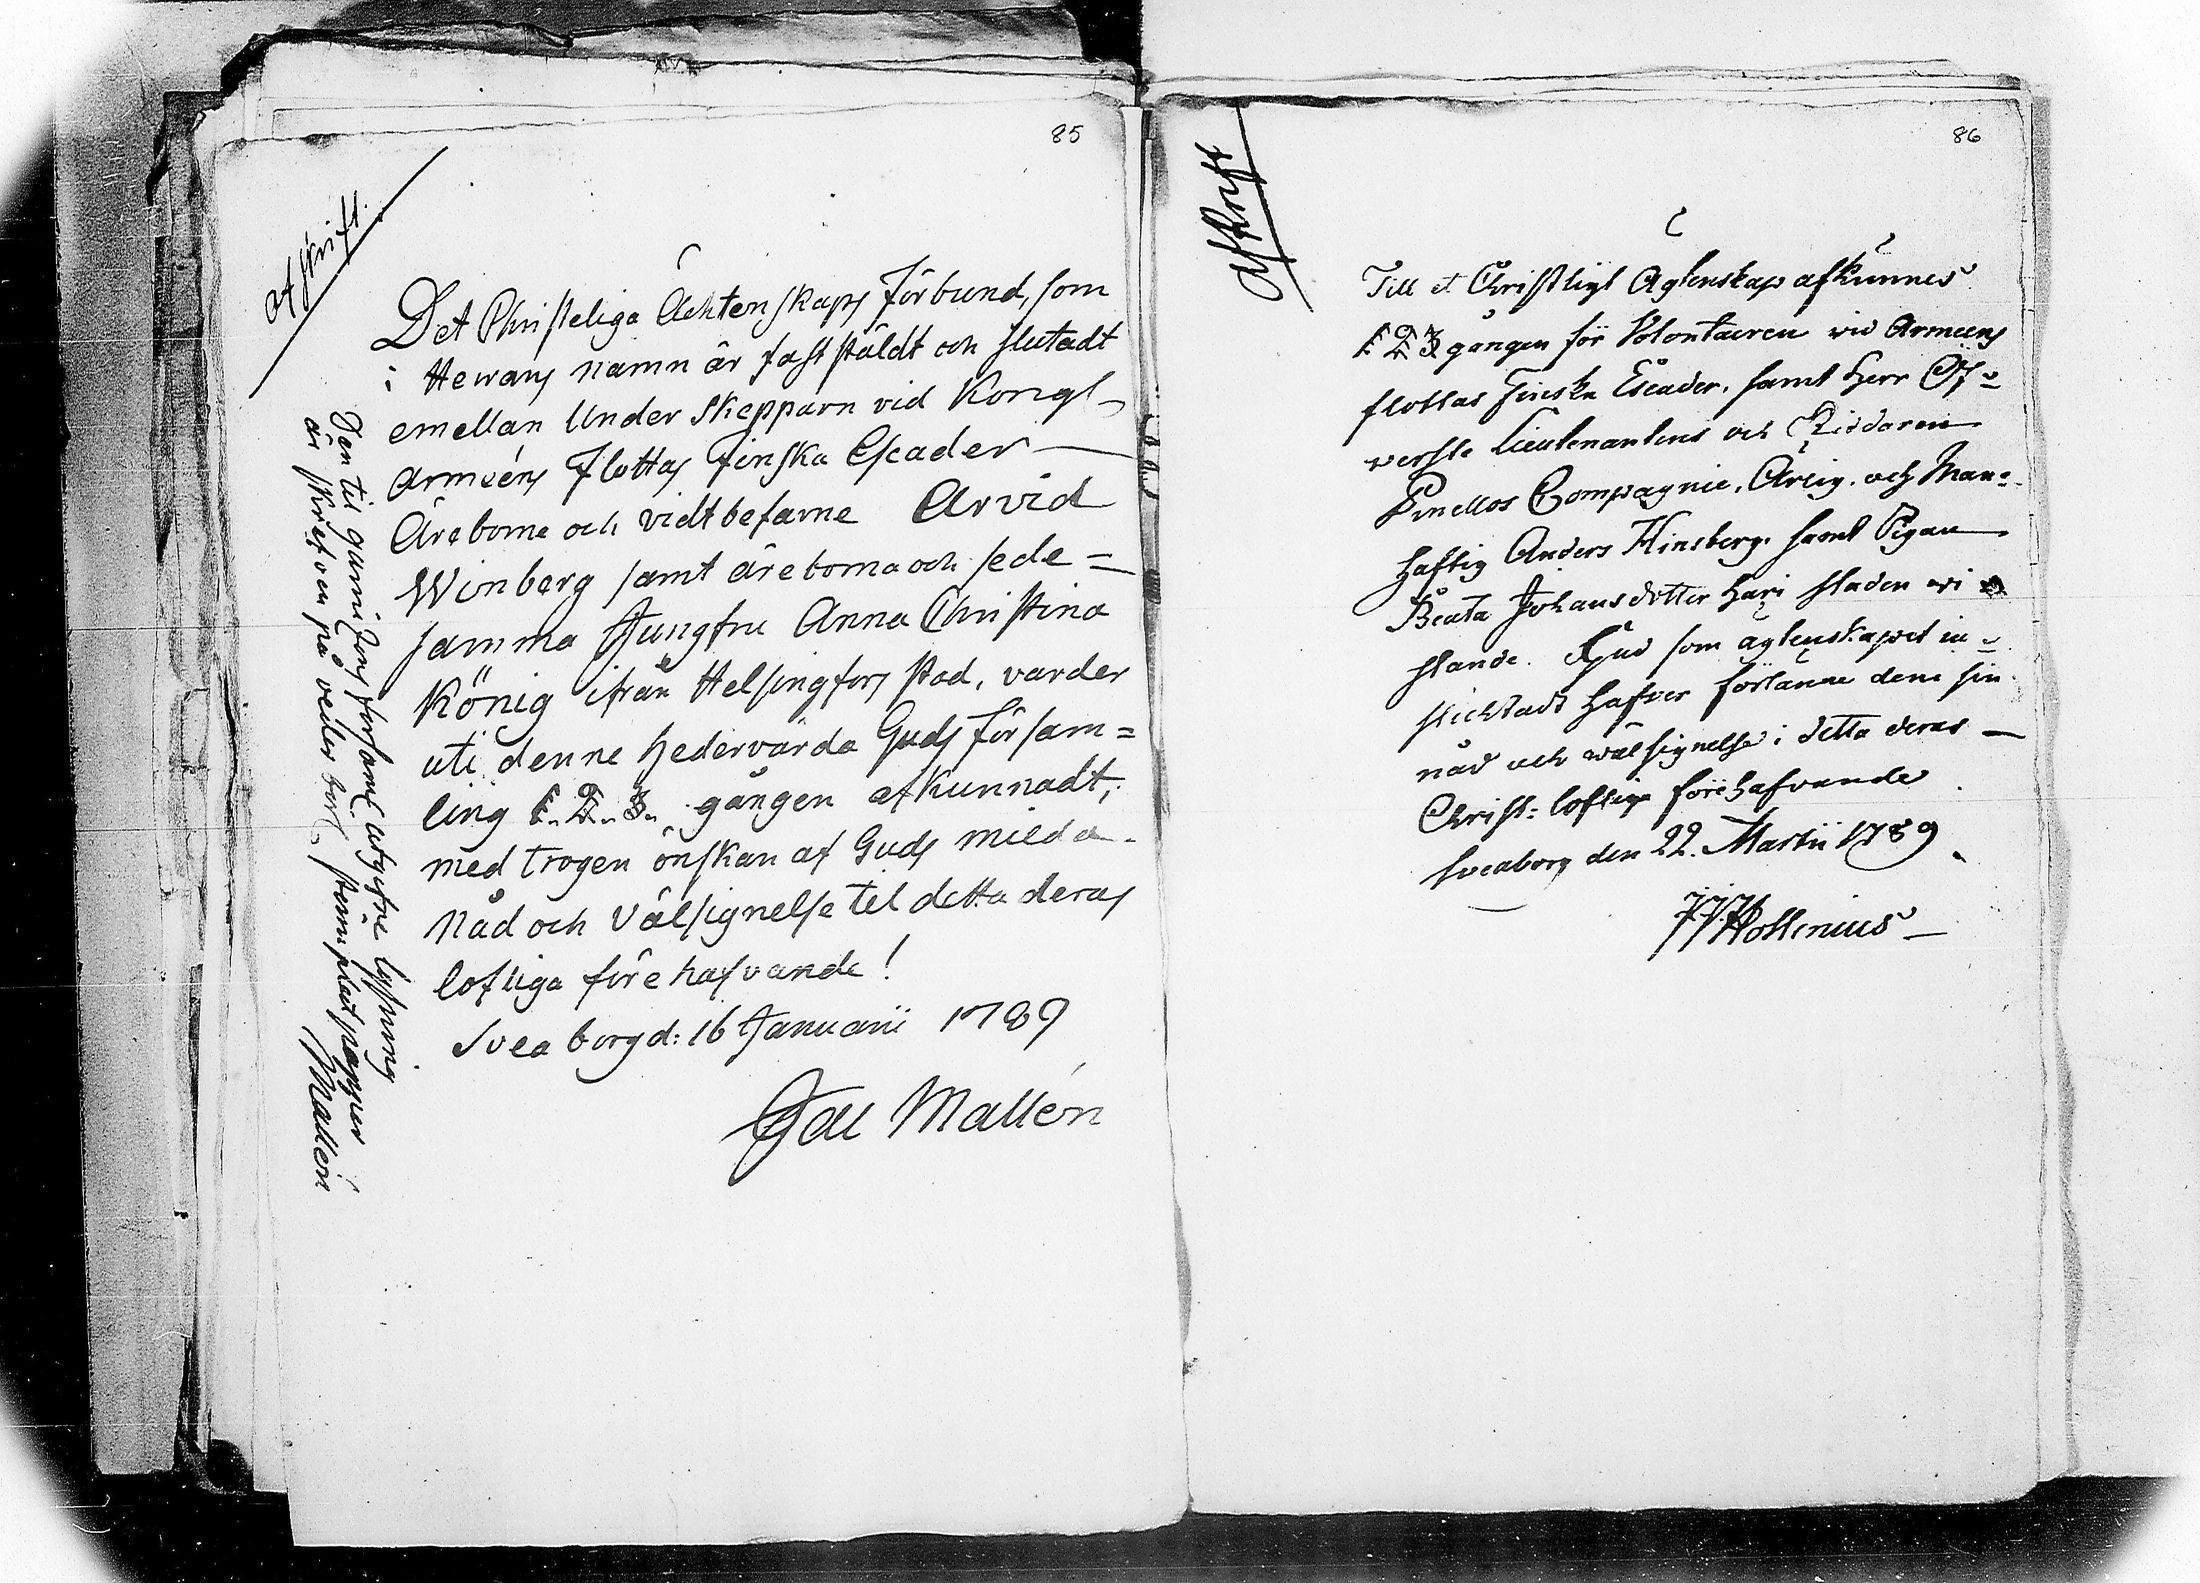 85
Afskrift.
Det Christeliga Äcktenskaps Förbund, som
i Herrans namn är fastståldt och slutadt
emellan Under Skepparn vid Kongl
Armeéns Flottas Finska Escader
Äreborne och vidtbefarne Arvid
Winberg samt äreborna och sede=
samma Jungfru Anna Christina
König ifrån Helsingfors stad, varder
uti denne hedervärda Guds Försam=
ling 1. 2. 3. gången afkunnadt,
med trogen önskan af Guds milda
Nåd och Välsignelse til detta deras
lofliga förehafvande!
Sveaborg d: 16 Januarii 1789
Jac Mallén
Den til garnizons församl utgifne lysning
är skrefven på veder bort. stämplat papper
Mallén
86
Afskrift
Till et Christligt Ägtenskap afkunnes
1 2 3 gången för Volontairen vid Armeens
flottas Finska Escader, samt Herr Öf=
verste Lieutenantens och Riddaren
Pinellos Compagnie, Ärlig. och Man=
haftig Anders Hinsberg. samt Pigan
Beata Johansdotter här i staden vi
stande. Gud som ägtenskapet in=
stichtadt hafver förlänne dem sin
nåd och wälsignelse i detta deras
Christ: lofliga förehafvande
Sveaborg den 22. Martii 1789